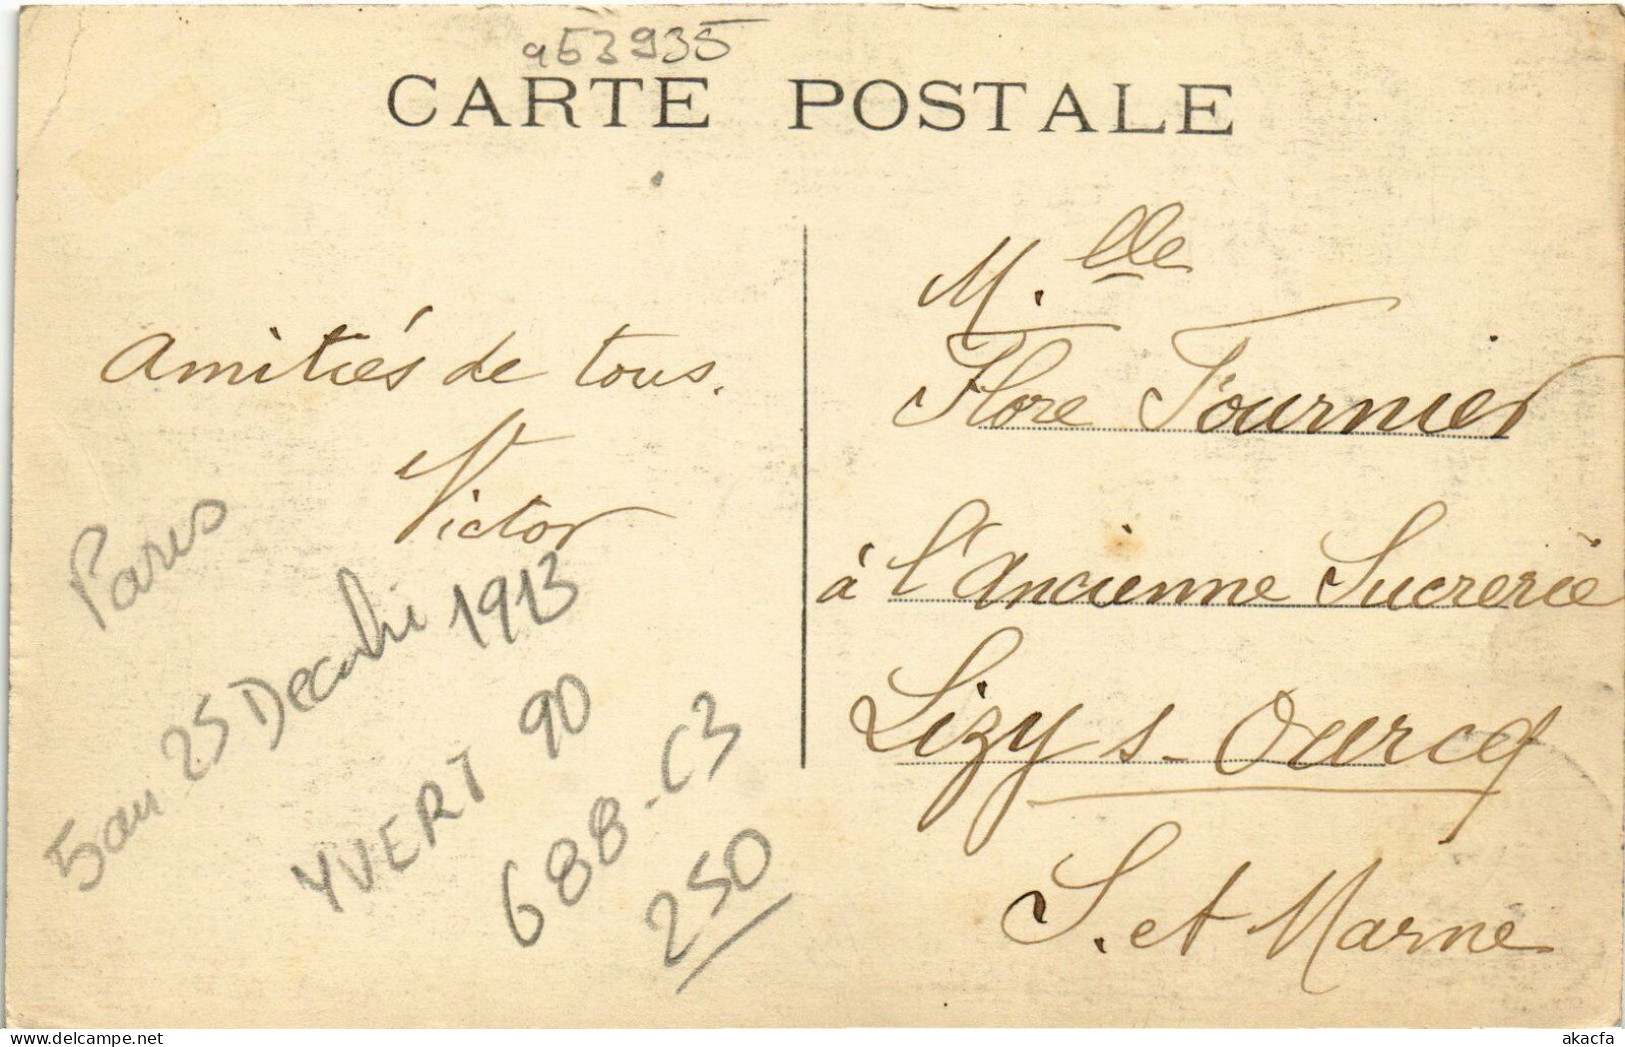 a53935
CARTE POSTALE
Amitiés de tous.
Victor
Paris
5 au 25 Decembre 1913
YVERT 90
688-C3
250
M.lle
Flore Fournier
à l'Ancienne Sucrerie
Lizy s- Ourcq
S. et Marne
akacfa